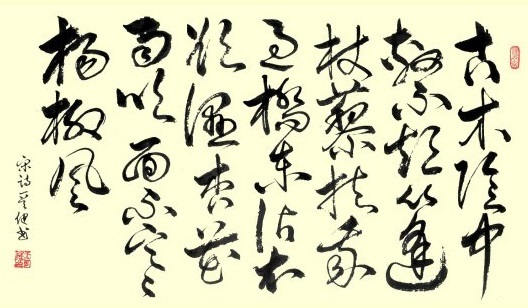 古木陰中
繫短篷
杖藜扶我
過橋東沾衣
欲濕杏花
雨吹面不寒
楊柳風
宋詩